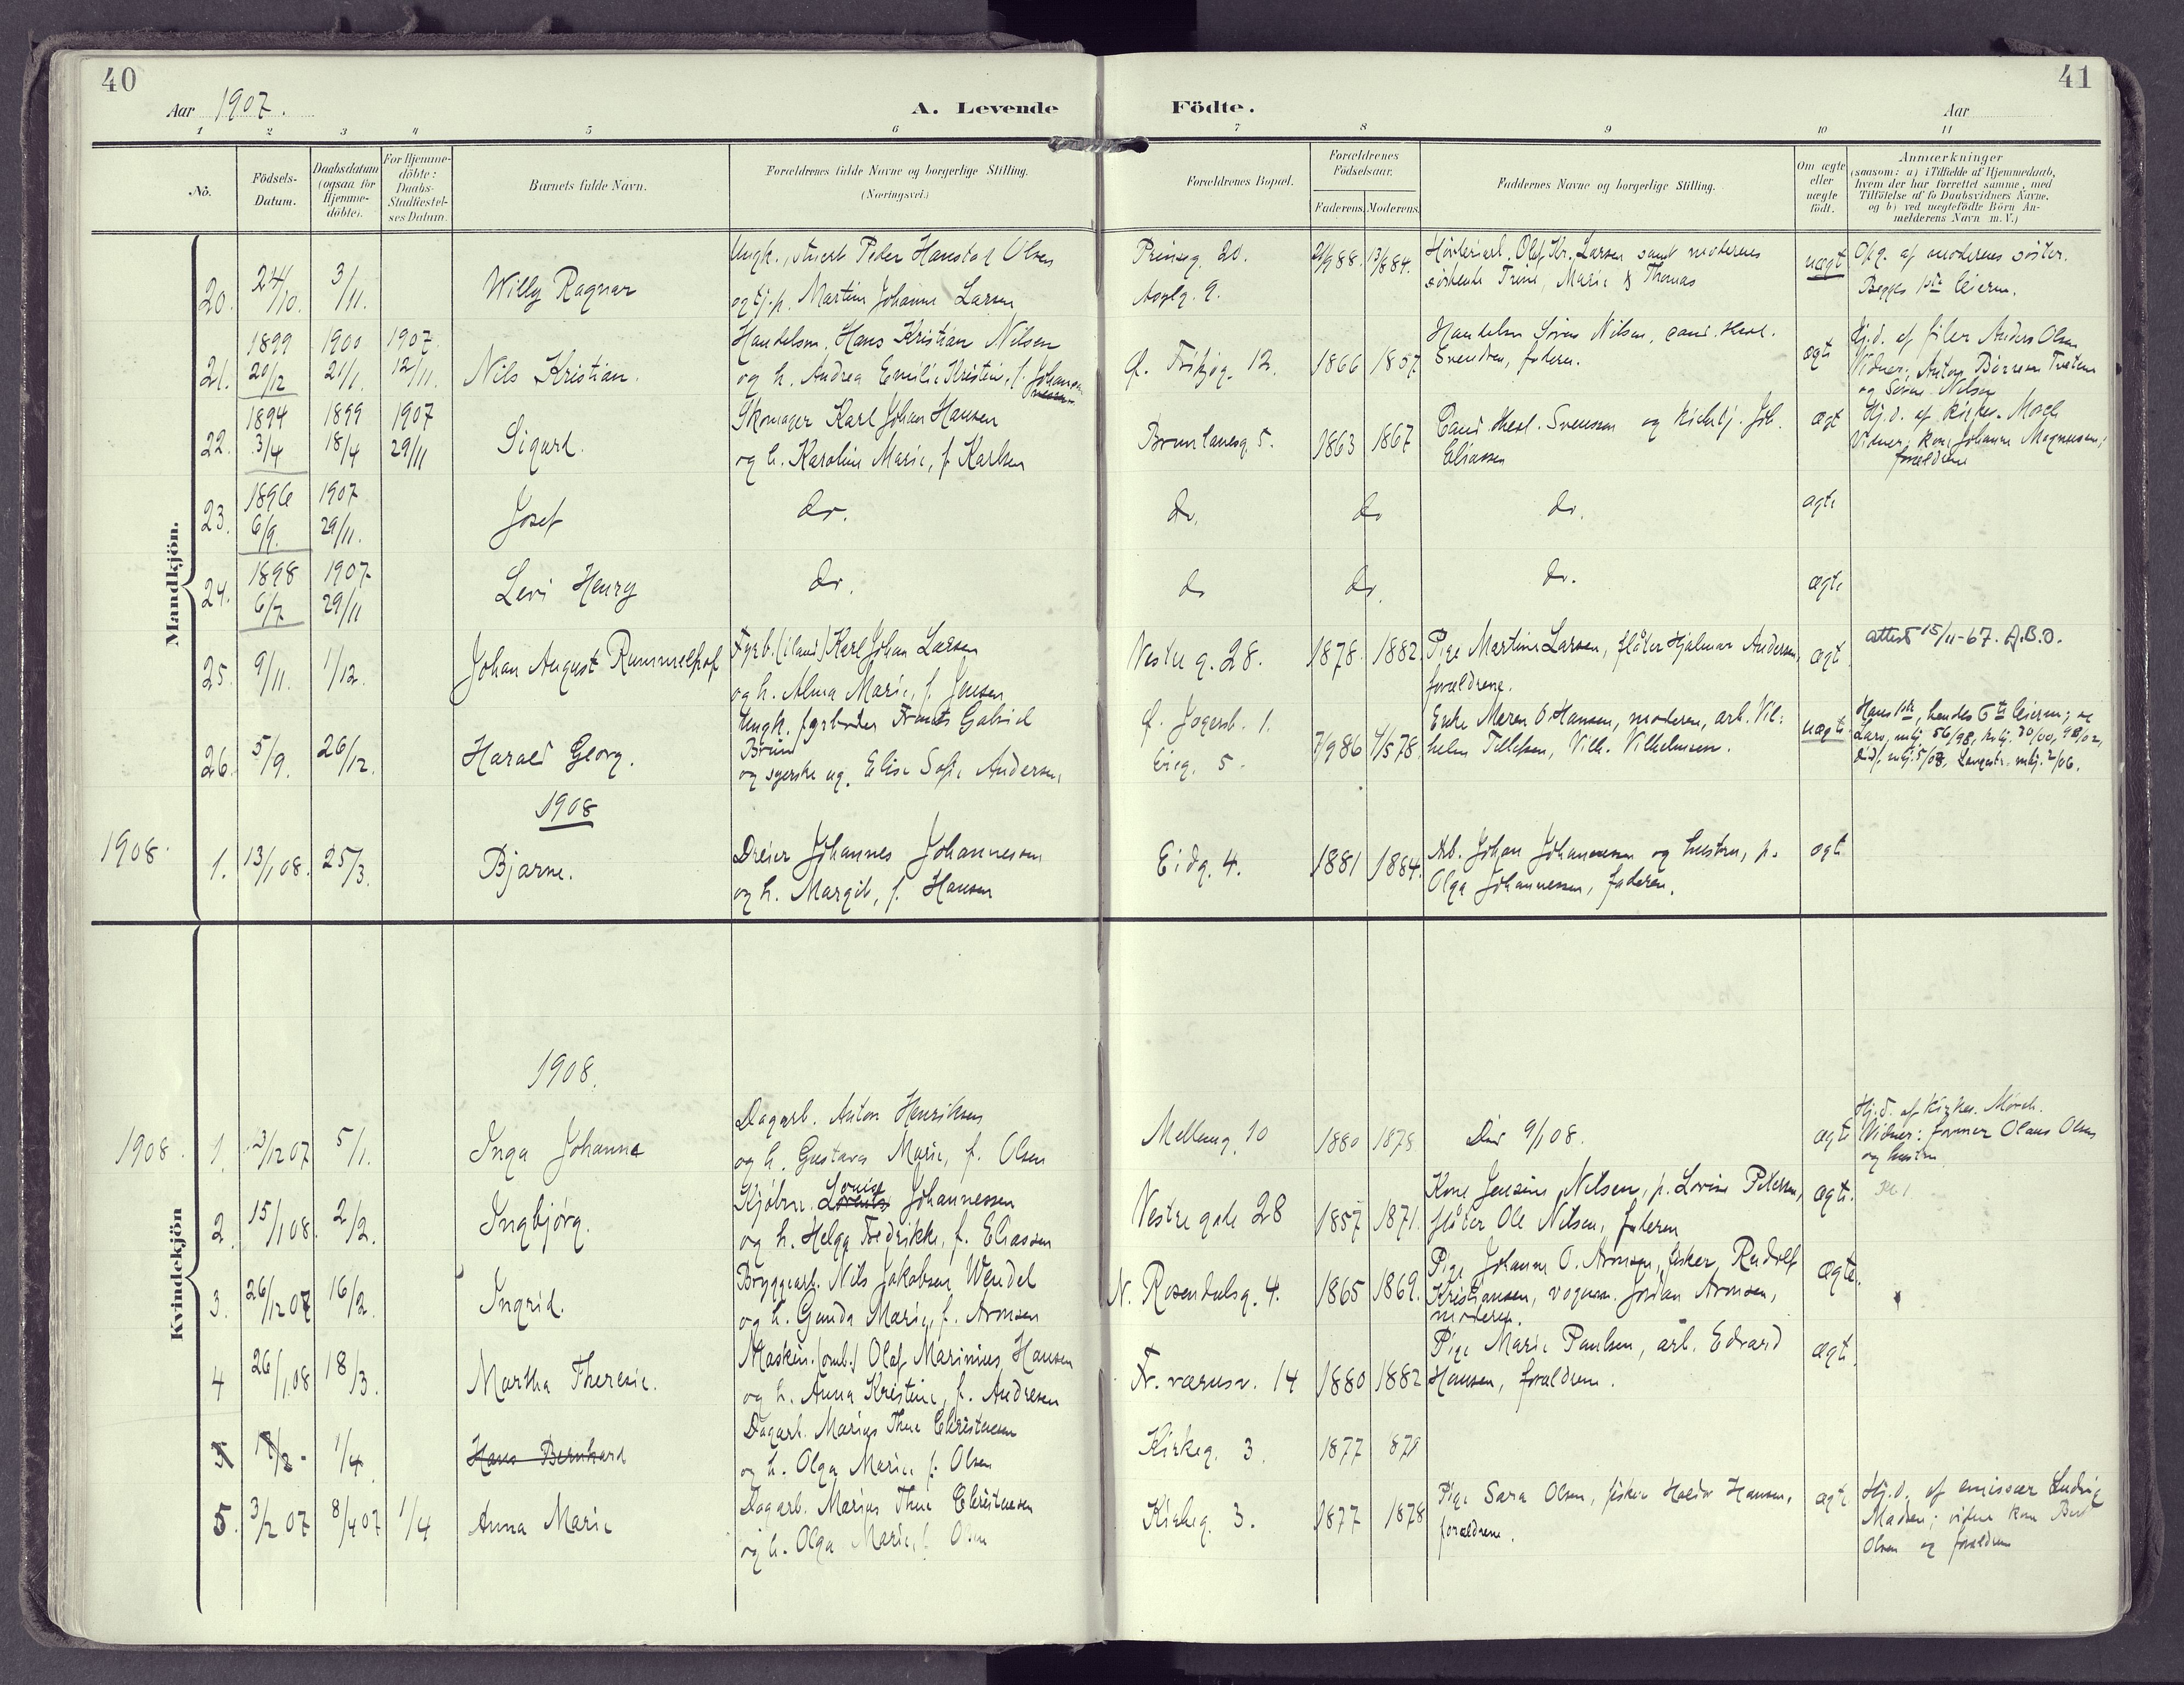 40
41
Aar 1907.
A. Levende
Födte.
Aar
1 2 3 4 5 6 7 8 9 10 11
No.
Födsels-
Datum.
Daabsdatum
(ogsaa for
Hjemme-
döbte).
For Hjemme-
döbte:
Daabs-
Stadfæstel-
ses Datum.
Barnets fulde Navn.
Forældrenes fulde Navne og borgerlige Stilling.
(Næringsvei.)
Forældrenes Bopæl.
Forældrenes
Födselsaar.
Faderens. Moderens.
Faddernes Navne og borgerlige Stilling.
Om ægte
eller
uægte
født.
Anmærkninger
(saasom: a) i Tilfælde af Hjemmedaab,
hvem der har forrettet samme, med
Tilföielse af to Daabsvidners Navne,
og b) ved uægtefödte Börn An-
melderens Navn m. V.)
Mandkjön.
20. 24/10. 3/11. Willy Ragnar
Ungk., Peder Olsen
og tj.p. Martine Johanne Larsen
Prinseg. 20.
Asylg. 9.
Olaf Kr. Larsen samt moderens
søskende Trine, Marie & Thomas
uægt
Opg. af moderens söster.
Begges 1ste leierm.
1899 1900 1907
21. 20/12 21/1. 12/11. Nils Kristian.
Handelsm. Hans Kristian Nilsen
og h. Andrea Emilie Kristine, f. Johannessen
12. 1866 1857
Handelsm Sören Nilsen, cand. theol.
Svendsen, faderen.
ægte
Hj.d. af filer Anders Olsen
Vidner: Anton
og Sören Nilsen
1894 1899 1907
22. 3/4 18/4 29/11 Sigurd.
Skomager Karl Johan Hansen
og h. Karoline Marie, f. Karlsen
Brunlanesg. 5. 1863 1867
Cand. theol. Svensson og kirketj. Joh.
Eliassen
ægt
Hj.d. af kirkes. Morch
Vidner: kone Johanne Magnussen,
forældrene
1896 1907
23. 6/9. 29/11. Josef do. do. do do. ægte
1898 1907
24. 6/7 29/11 Levi Henry do. do do. do. ægte
25. 9/11. 1/12. Johan August Rummelhof
Fyrb. (iland) Karl Johan Larsen
og h. Alma Marie, f. Jensen
Vestre g. 28. 1878. 1882.
Pige Martine Larsen, flåter Hjalmar Andersen,
forældrene.
ægt
attest 15/11-67. A.B.O.
26. 5/9. 26/12. Harald Georg.
Ungk. fyrböder Frants Gabriel
Bruun
og syerske ug. Elise Sofie Andersen,
1. 7/9 86 4/5 78.
5.
Enke Maren O. Hansen, moderen, arb. Vil-
helm Tellefsen, Vilh. Vilhelmsen.
uægte
Hans 1ste, hendes 5te leierm;
1908
1908.
1. 13/1 08. 25/3. Bjarne.
Dreier Johannes Johannessen
og h. Margit, f. Hansen
Eidg. 4. 1881 1884.
Arb. Johan Johannessen og hustru, p.
Olga Johannessen, faderen.
ægte
Kvindekjön
1908.
1908.
1. 3/12 07 5/1. Inga Johanne
Dagarb. Anton Henriksen
og h. Gustava Marie, f. Olsen
Mellemg. 10 1880 1878
Död 9/1 08.
ægte
Hj.d. af kirkes. Morch.
Vidner: former Olaus Olsen
og hustru
2. 15/1 08. 2/2. Ingbjörg.
Kjöbm. Louise Johannessen
og h. Helga Fredrikke, f. Eliassen
Vestre gade 28 1857 1871.
Kone Jensine Nilsen, p. Lovise Petersen,
flåter Ole Nilsen, faderen
ægte.
3. 26/12 07 16/2. Ingrid.
Bryggearb. Nils Jakobsen Wendel
og h. Gunda Marie, f. Arnesen
N. Rosendalsg. 4. 1865 1869.
Pige Johanne O. Arnesen, fisker Rudolf
Kristiansen, vognm. Johan Arnesen,
moderen.
ægte.
4 26/1 08 18/3. Martha Theresie.
Maskin. (omb.) Olaf Marinius Hansen
og h. Anna Kristine, f. Andresen
Fr.værnsv. 14 1880 1882
Pige Marie Paulsen, arb. Edvard
Hansen, forældrene.
ægte.
1/4. Hans Bernhard
Dagarb. Marius Thue Christensen
og h. Olga Marie f. Olsen
Kirkeg. 3. 1877 1879
5. 3/2 07 8/4 07 1/4 Anna Marie
Dagarb. Marius Thue Christensen
og h. Olga Marie, f. Olsen
Kirkeg. 3. 1877 1878
Pige Sara Olsen, fisker Hansen,
forældrene.
ægte
Hj.d. af emissær Ludvig
Madsen; vidne kone
Olsen og forældrene